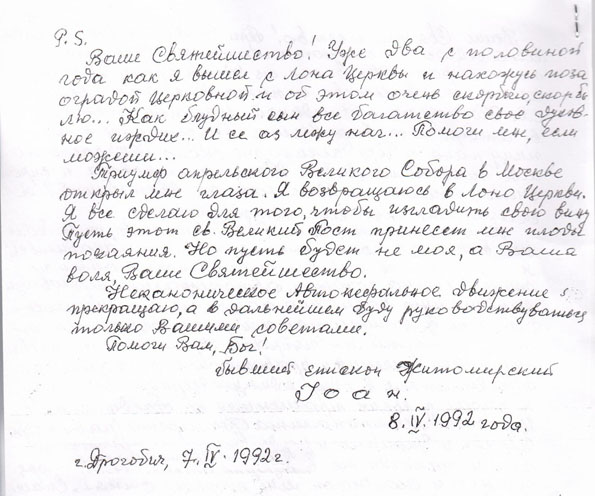 P.S.
Ваше Святейшество! Уже два с половиной
года как я вышел с Лона Церквы и нахожусь поза
оградой Церковной и об этом очень скорблю, скорб-
лю... Как блудный сын все богатство свое духов-
ное иждих... И се аз лежу наг... Помоги мне, если
можеши...
Триумф апрельского Великого Собора в Москве
открыл мне глаза. Я возвращаюсь в Лоно Церквы.
Я все сделаю для того, чтобы изгладить свою вину
Пусть этот св. Великий Пост принесет мне плоды
покаяния. Но пусть будет не моя, а Ваша
воля, Ваше Святейшество.
Неканоническое Автокефальное движение я
прекращаю, а в дальнейшем буду руководствуваться
только Вашими советами.
Помоги Вам, Бог!
бывший епископ Житомирский
Іоан.
8.IV.1992 года.
г. Дрогобич, 7.IV.1992 г.